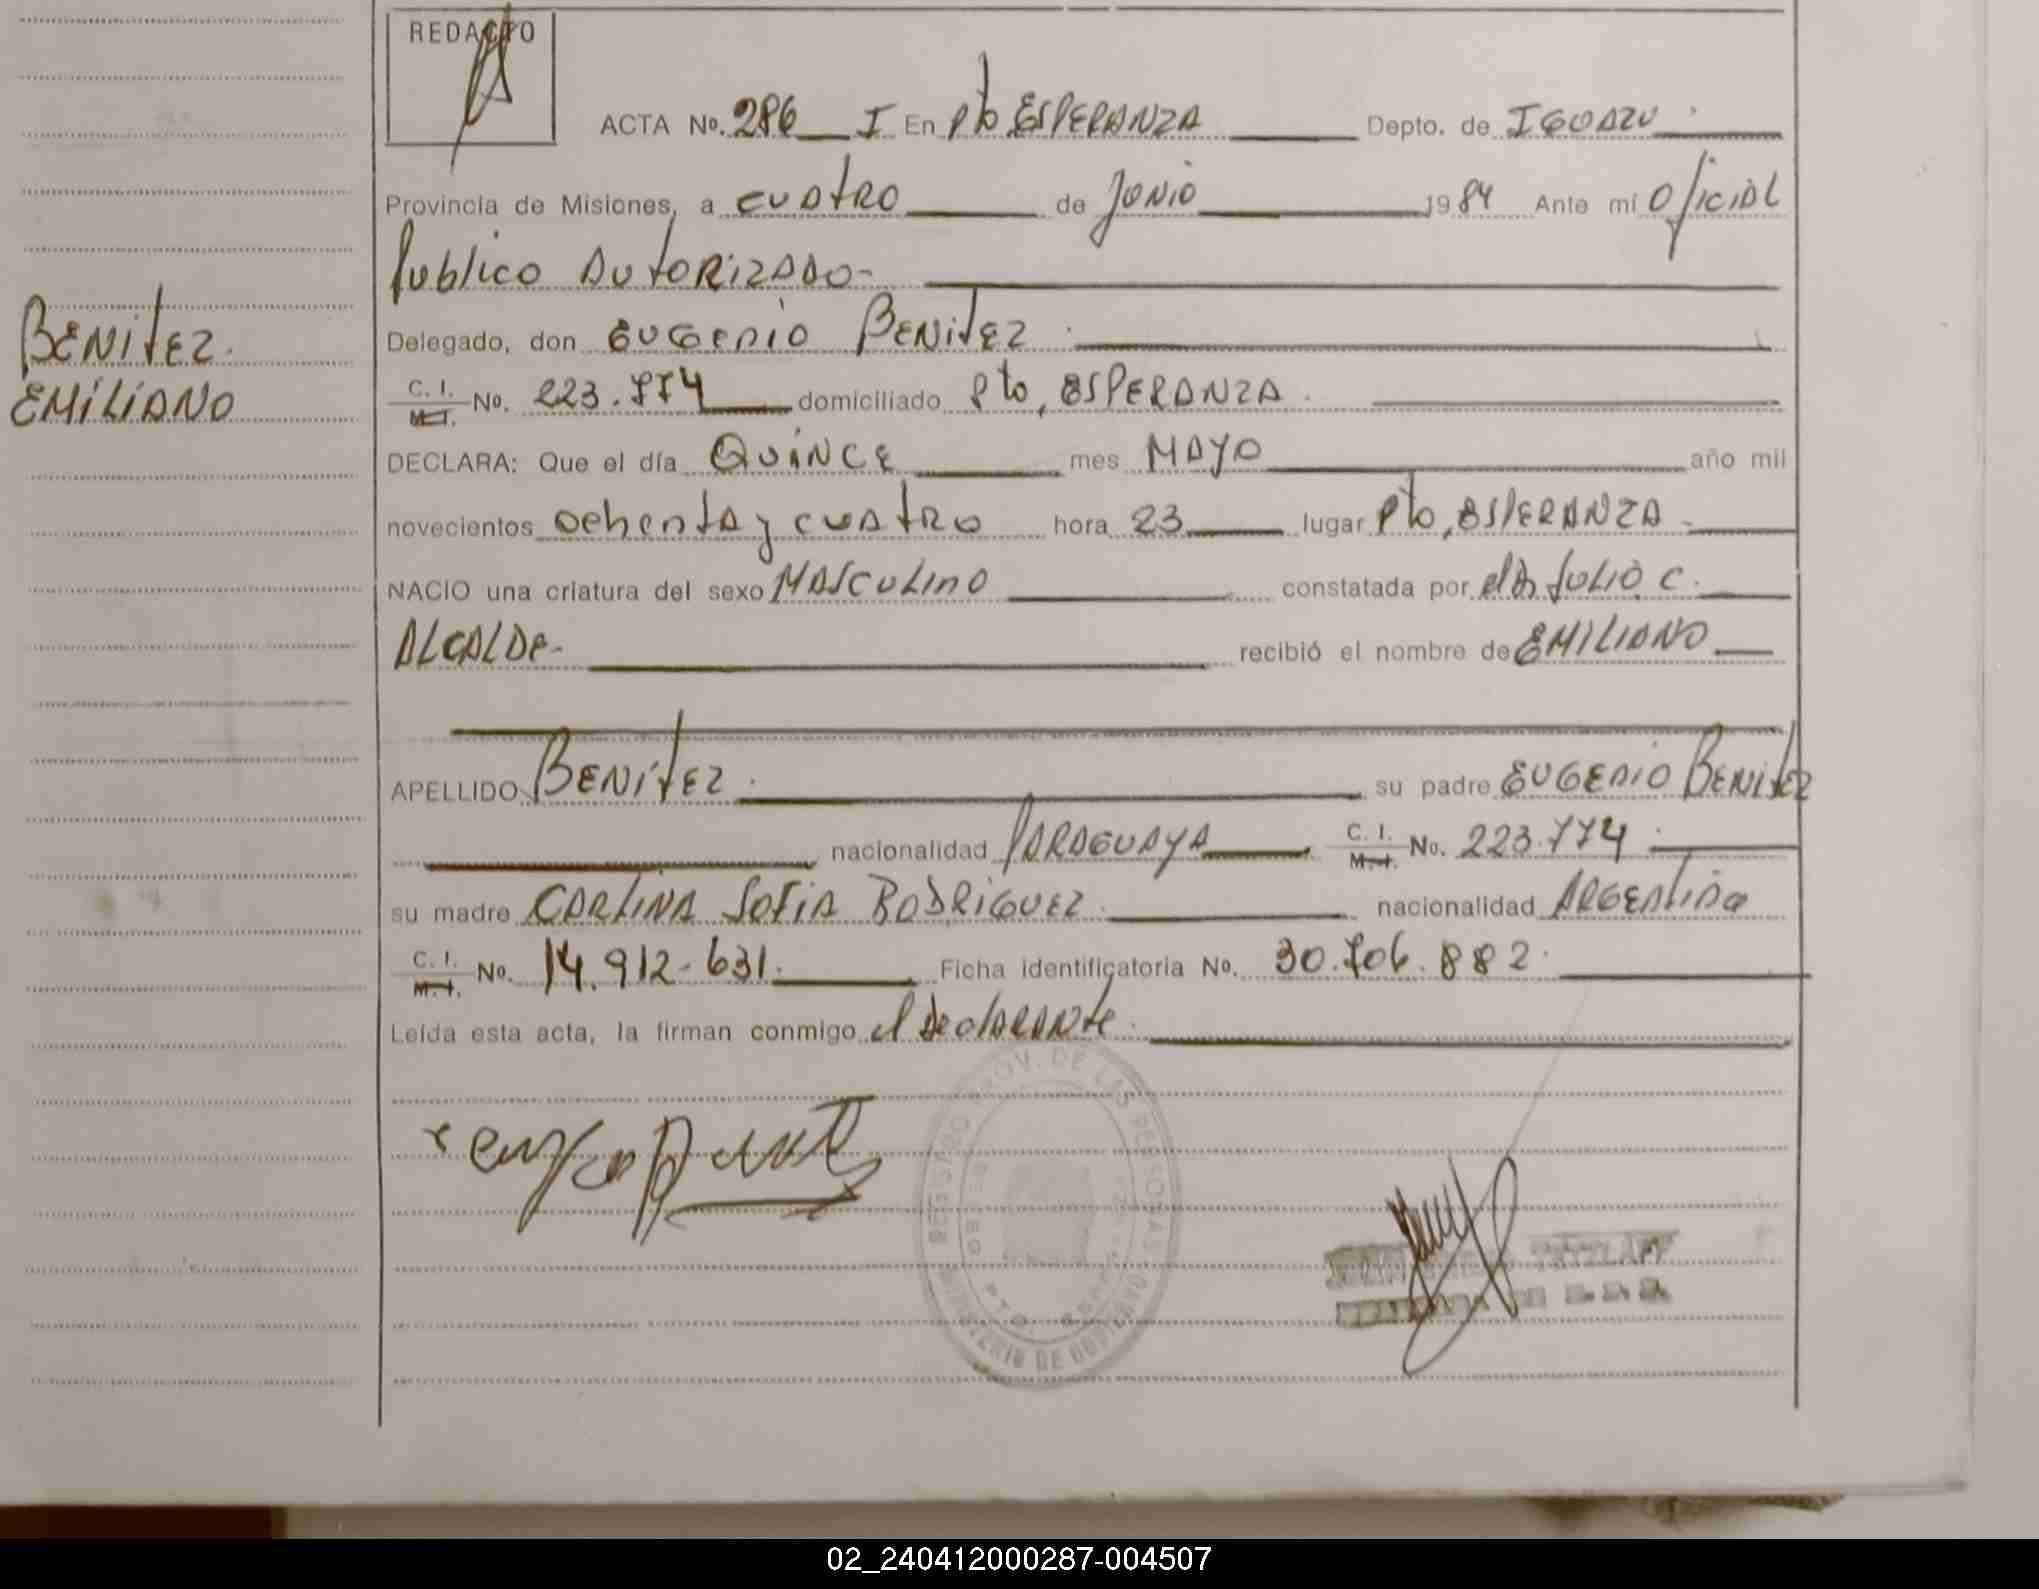 REDACTO
ACTA No. 286 I En Pto ESPERANZA Depto. de IGUAZU.
Provincia de Misiones, a CUATRO de JUNIO 1984 Ante mí Oficial
Publico AUTORIZADO-
BENITEZ.
EMILIANO
Delegado, don EUGENIO BENITEZ.
C. I. No. 223.774 domiciliado Pto, ESPERANZA.
M. I.
DECLARA: Que el día QUINCE mes MAYO año mil
novecientos ochenta y cuatro hora 23 lugar Pto, ESPERANZA-
NACIO una criatura del sexo MASCULINO constatada por el Dr JULIO C.
ALCALDE- recibió el nombre de EMILIANO
APELLIDO BENÍTEZ. su padre EUGENIO BENITEZ
nacionalidad PARAGUAYA C. I. No. 223.774.
M. I.
su madre SOFIA RODRIGUEZ. nacionalidad ARGENTINA
C. I. No. 14.912-631. Ficha identificatoria No. 30.706.882.
M. I.
Leída esta acta, la firman conmigo el declarante.
REGISTRO PROV. DE LAS PERSONAS
MINISTERIO DE GOBIERNO
02_240412000287-004507